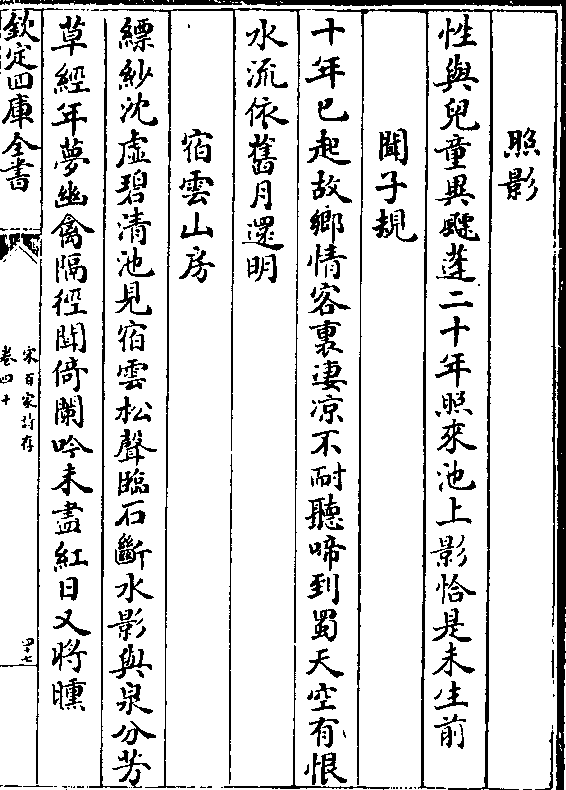 照影
性與兒童異飄蓬二十年照來池上影恰是未生前
聞子規
十年已起故鄉情客裏淒凉不耐聽啼到蜀天空有恨
水流依舊月還明
宿雲山房
縹緲沈虛碧清池見宿雲松聲臨石斷水影與泉分芳
草經年夢幽禽隔徑聞倚闌吟未盡紅日又將曛
欽定四庫全書
宋百家詩存
卷四十
四十七